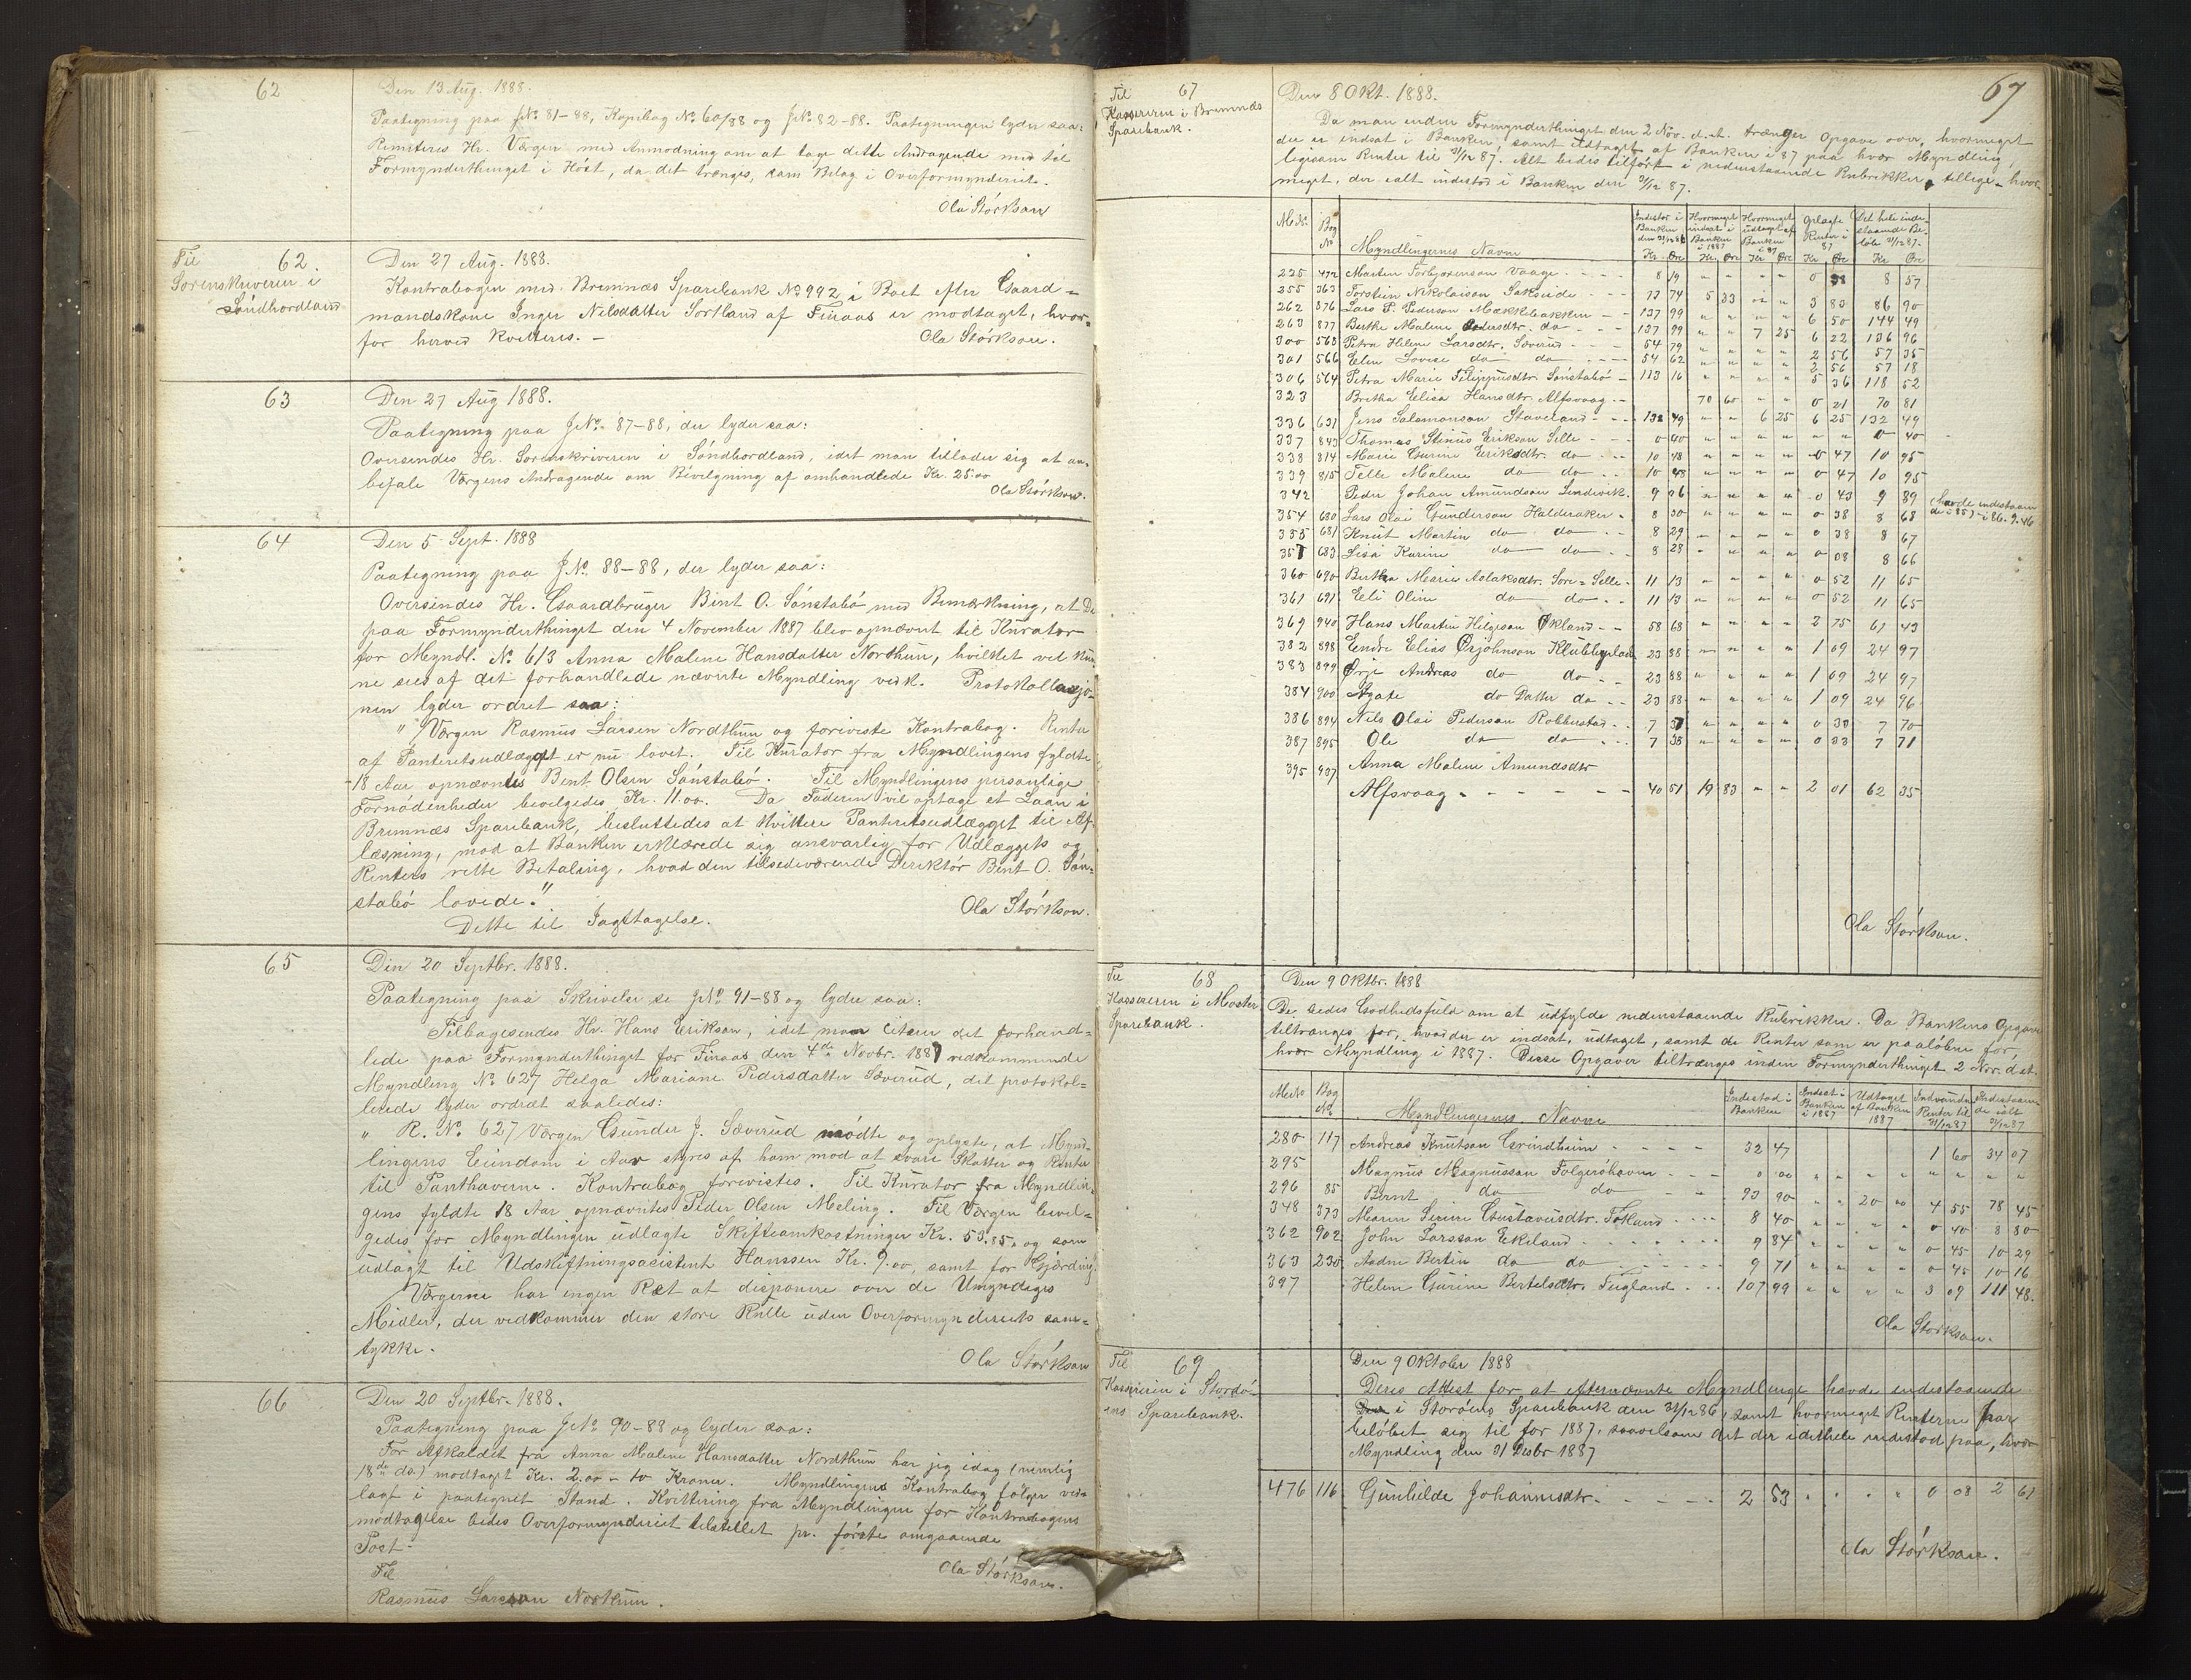 62
Den 13 Aug. 1888.
Paategning paa JNo 81-88, Kopibog No 60/88 og JNo 82-88. Paategningen lyder saa:
Remiteres Hr. Værgen med Anmodning om at tage dette Andragende med til
Formynderthinget i Høst, da det trænges, som Bilag i Overformynderiet.
Ola Størkson
Til 62.
Sorenskriveren i
Søndhordland
Den 27 Aug. 1888.
Kontrabogen med Bremnæs Sparebank No 992 i Boet efter Gaard=
mandskone Inger Nilsdatter Sortland af Finaas er modtaget, hvor=
for herved kvitteres. -
Ola Størkson.
63
Den 27 Aug 1888.
Paategning paa JNo 87-88, der lyder saa:
Oversendes Hr. Sorenskriveren i Søndhordland, idet man tillader sig at an=
befale Værgens Andragende om Bevilgning af omhandlede Kr. 25.00
Ola Størkson.
64
Den 5 Sept. 1888
Paategning paa JNo. 88-88, der lyder saa:
Oversendes Hr. Gaardbruger Bint O. Sønstabø med Bemærkning, at De
paa Formynderthinget den 4 November 1887 blev opnævnt til Kurator
for Myndl. No 613 Anna Malene Hansdatter Northun, hvilket vil kun
ne sees af det forhandlede nævnte Myndling vedk. Protokollasjo-
nen lyder ordret saa:
" Værgen Rasmus Larsen Nordthun og foreviste Kontrabog. Renter
af Panteretsudlægget er nu lovet. Til Kurator fra Myndlingens fyldte
18 Aar opnævntes Bent Olsen Sønstabø. Til Myndlingens personlige
Fornødenheder bevilgedes Kr. 11.00. Da Faderen vil optage et Laan i
Bremnæs Sparebank, besluttedes at kvittere Panteretsudlægget til Af-
læsning, mod at Banken erklærede sig ansvarlig for Udlæggets og
Renters rette Betaling, hvad den tilstedeværende Direktør Bent O. Søn=
stabø lovede."
Dette til Iagttagelse.
Ola Størkson.
65
Den 20 Septbr. 1888.
Paategning paa Skrivelse se JNo 91-88 og lyder saa:
Tilbagesendes Hr. Hans Erikson, idet man citerer det forhand=
lede paa Formynderthinget for Finaas den 4de Novbr. 1887 vedkommende
Myndling No 627 Helga Mariane Pedersdatter Sæverud, det protokol=
lerede lyder ordræt saaledes:
" R. No. 627 Værgen Gunder J. Sæverud mødte og oplyste, at Mynd-
lingens Eiendom i Aar styres af ham mod at svare Skatter og Renter
til Panthaverne. Kontrabog forevistes. Til Kurator fra Myndlin-
gens fyldte 18 Aar opnævntes Peder Olsen Meling. Til Værgen bevil=
gedes for Myndlingen udlagte Skifteomkostninger Kr. 53.85, og som
udlagt til Udskiftningsasistent Hanssen Kr. 9.00, samt for Gjærding.
Værgerne har ingen Ræt at disponere over de Umyndiges
Midler, der vedkommer den store Rulle uden Overformynderiets sam=
tykke.
Ola Størkson
66
Den 20 Septbr. 1888.
Paategning paa JNo. 90-88 og lyder saa:
For Afkaldet fra Anna Malene Hansdatter Nordthun har jeg idag (nemlig
18de ds.) modtaget Kr. 2.00 - to Kroner. Myndlingens Kontrabog følger ved=
lagt i paategnet Stand. Kvittering fra Myndlingen for Kontrabogens
modtagelse bedes Overformynderiet tilstillet pr. første omgaaende
Post.
Til
Ola Størkson.
Rasmus Larsson Northun.
67
Til 67
Kassereren i Bremnæs
Sparebank.
Den 8 Okt. 1888.
Da man inden Formynderthinget den 2 Nov. d. A. trænger Opgave over, hvormeget
der er indsat i Banken, samt udtaget af Banken i 87 paa hver Myndling,
ligesom Renter til 31/12 87. Alt bedes tilført i nedenstaaende Rubrikker, tillige hvor
meget, der ialt indestod i Banken den 31/12 87.
M.No. Bog No Myndlingernes Navne Indestod i Banken den 31/12 86 Hvormeget indsat i Banken i 1887 Hvormeget udtaget af Banken i 87 Oplagte Renter i 87 Det hele inde-staaende Be-løb 31/12 87.
Kr. Øre Kr. Øre Kr Øre Kr Øre Kr Øre
225 472 Martin Torbjørenson Vaage - - - 8 19 " " " " 0 38 8 57
255 363 Torstein Nikolaison Sakseide - - - 77 74 5 33 " " 3 83 86 90
262 876 Lars P. Pederson Mækkebakken - - 137 99 " " " " 6 50 144 49
263 877 Berthe Malene Pedersdtr. do - - - 137 99 " " 7 25 6 22 136 96
300 563 Petra Helene Larsdtr. Sæverud - - - 54 79 " " " " 2 56 57 35
301 566 Elen Lovise do do - - - - 54 62 " " " " 2 56 57 18
306 564 Petra Marie Filippusdtr. Sønstabø - 113 16 " " " " 5 36 118 52
323 Britha Elisa Hansdtr. Alfsvaag - - 70 60 " " 0 21 70 81
336 631 Jens Salomonson Staveland - - - 132 49 " " 6 25 6 25 132 49
337 843 Thomas Stinius Erikson Selle - - - 0 40 " " " " " " 0 40
338 814 Marie Gurine Eriksdtr. do - - 10 48 " " " " 0 47 10 95
339 815 Tille Malene do do - - 10 48 " " " " 0 47 10 95
342 Peder Johan Amundson Lindevik. 9 46 " " " " 0 43 9 89 (Havde indestaaen
de i 85) i 86. 9.46
354 680 Lars Olai Gunderson Halderaker - 8 30 " " " " 0 38 8 68
355 681 Knut Martin do do - - 8 29 " " " " 0 38 8 67
357 683 Lisa Karine do do - - 8 28 " " " " 0 38 8 66
360 690 Bertha Marie Aslaksdtr. Sore=Selle - 11 13 " " " " 0 52 11 65
361 691 Eli Oline do do - - 11 13 " " " " 0 52 11 65
369 940 Hans Martin Helgeson Økland - - 58 68 " " " " 2 75 61 43
382 898 Endre Elias Ørjohnson Klubbeplads 23 88 " " " " 1 09 24 97
383 899 Ørje Andreas do do - - 23 88 " " " " 1 09 24 97
384 900 Agate do Datter do - - 23 88 " " " " 1 09 24 96
386 894 Nils Olai Pederson Robberstad - - 7 37 " " " " 0 33 7 70
387 895 Ole do do - - - 7 38 " " " " 0 33 7 71
395 937 Anna Malene Amundsdtr
Alfsvaag - - - - - - - 40 51 19 83 " " 2 01 62 35
Ola Størkson.
Til 68
Kassereren i Moster
Sparebank.
Den 9 Oktbr. 1888
De bedes Godhedsfuld om at udfylde nedenstaaende Rubrikker. Da Bankens Opgave
tiltrænges for, hvad der er indsat, udtaget, samt de Renter som er paaløbne for,
hver Myndling i 1887. Disse Opgaver tiltrænges inden Formynderthinget 2 Nov. d. A.
M.No Bog No Myndlingernes Navne Indestod i Banken Indsat i Banken i 1887 Udtaget af Banken 1887 Indvundne Renter til 31/12 87 Indestaaen de ialt 31/12 87
280 117 Andreas Knutson Grindheim - - - - 32 47 1 60 34 07
295 Magnus Magnusson Folgerøhavn - - - 0 00 " " " " " " " "
296 85 Bernt do do - - 93 90 " " 20 " 4 55 78 45
348 373 Maren Serine Gustavusdtr. Tokland - - - - 8 40 " " " " 0 40 8 80
362 902 John Larsson Ekeland - - - - - - 9 84 " " " " 0 45 10 29
363 230 Aadne Bertin do do - - - - - 9 71 " " " " 0 45 10 16
397 Helene Gurine Bertelsdtr. Tufland - - - 107 99 " " " " 3 09 111 48.
Ola Størkson.
Til 69
Kassereren i Stordø-
ens Sparebank.
Den 9 Oktober 1888
Deres Attest for at efternævnte Myndlinge havde indestaaende
i Storøens Sparebank den 31/12 86, samt hvormeget Renterne har
beløbet sig til for 1887, saavelsom det der idethele indestod paa, hver
Myndling den 31 Desbr 1887
476 116 Gunhilde Johannesdtr. - - - - - 2 53 " " " " 0 08 2 61
Ola Størkson.